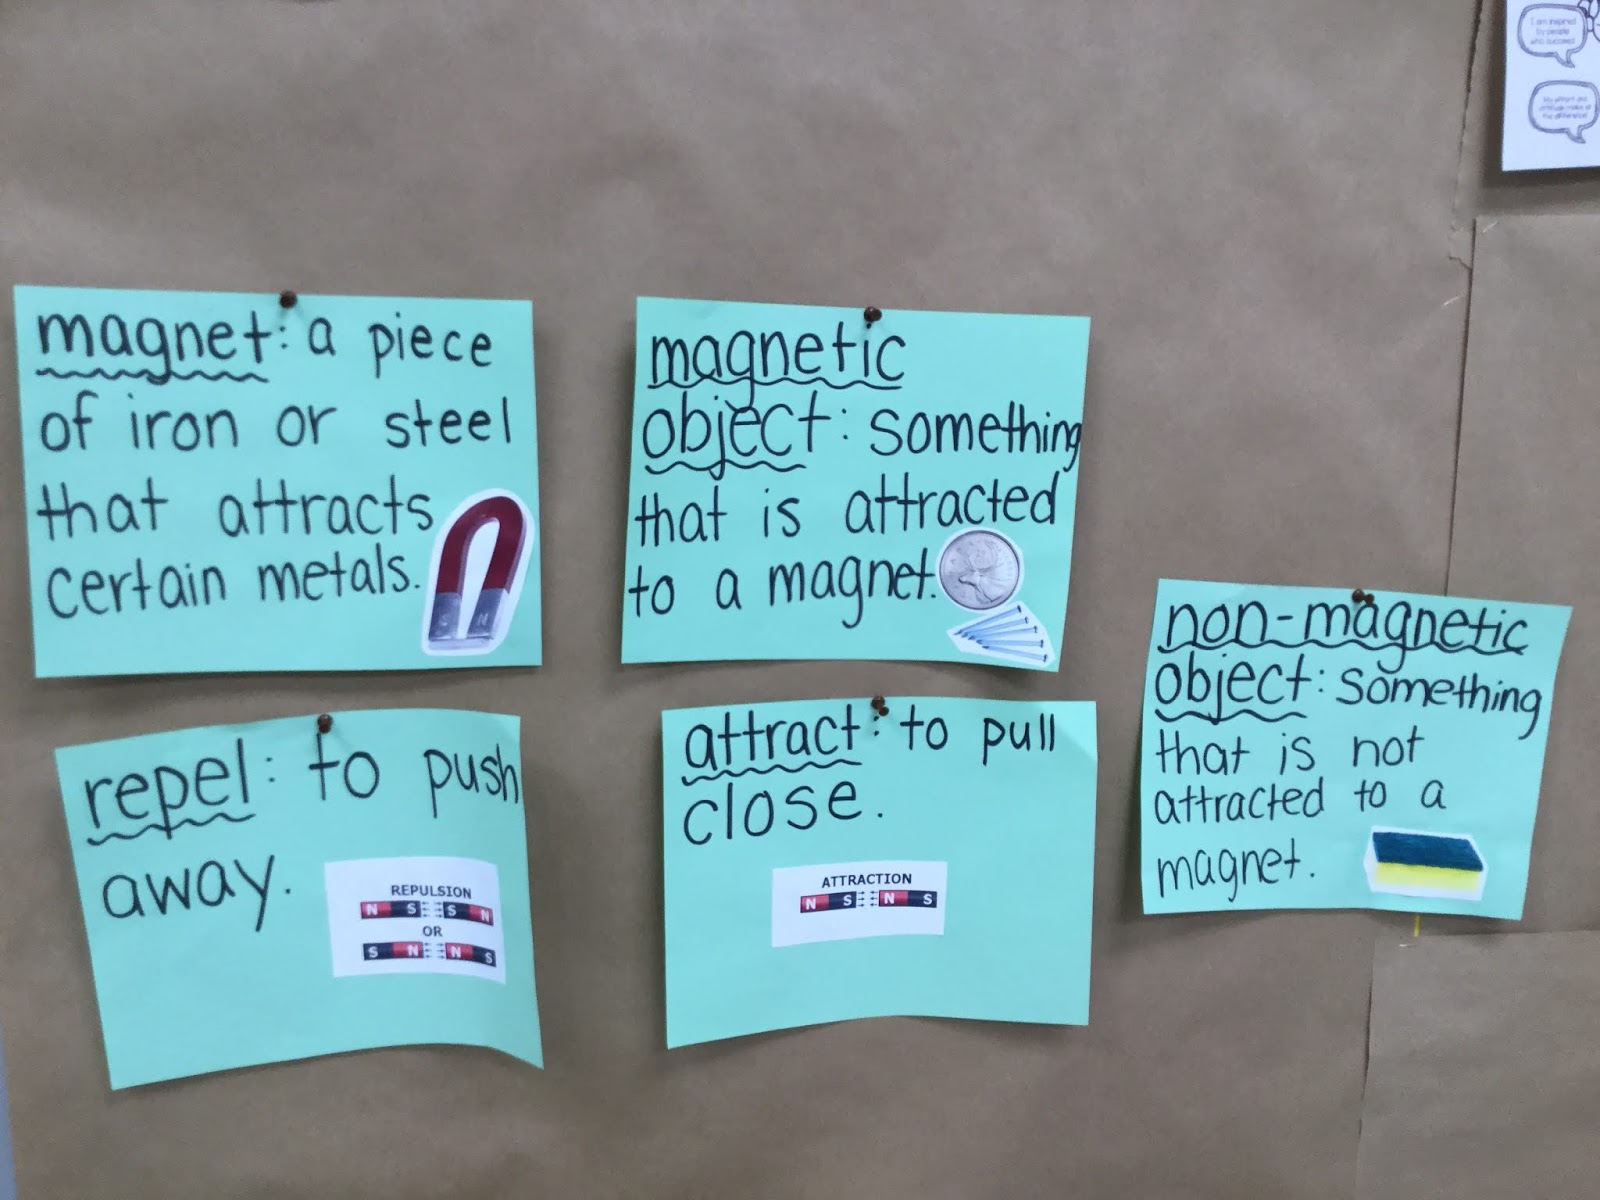 magnet: a piece
of iron or steel
that attracts
certain metals.
N
magnetic
object: something
that is attracted
to a magnet.
non-magnetic
object: something
that is not
attracted to a
magnet.
repel: to push
away.
REPULSION
N S S N
OR
S N N S
attract: to pull
close.
ATTRACTION
N S N S
I am inspired
by people
who succeed
My effort and
attitude make all
the difference!